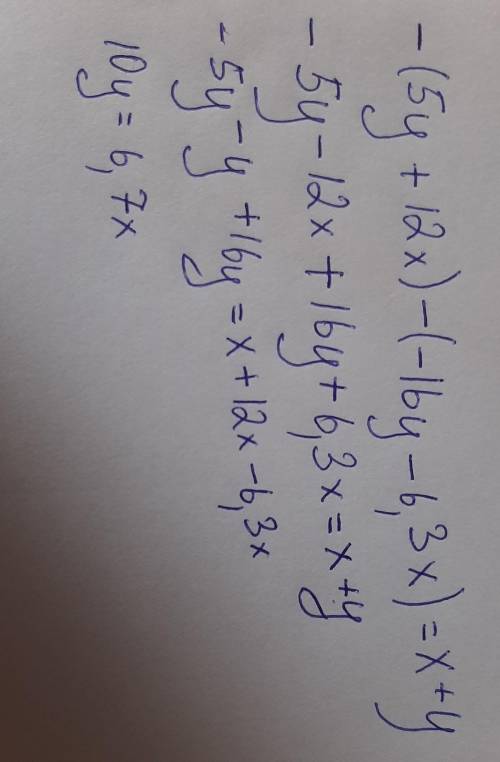 -(5y + 12x) - (-16y - 6,3x) = x + y
- 5y - 12x + 16y + 6,3x = x + y
- 5y - y + 16y = x + 12x - 6,3x
10y = 6,7x